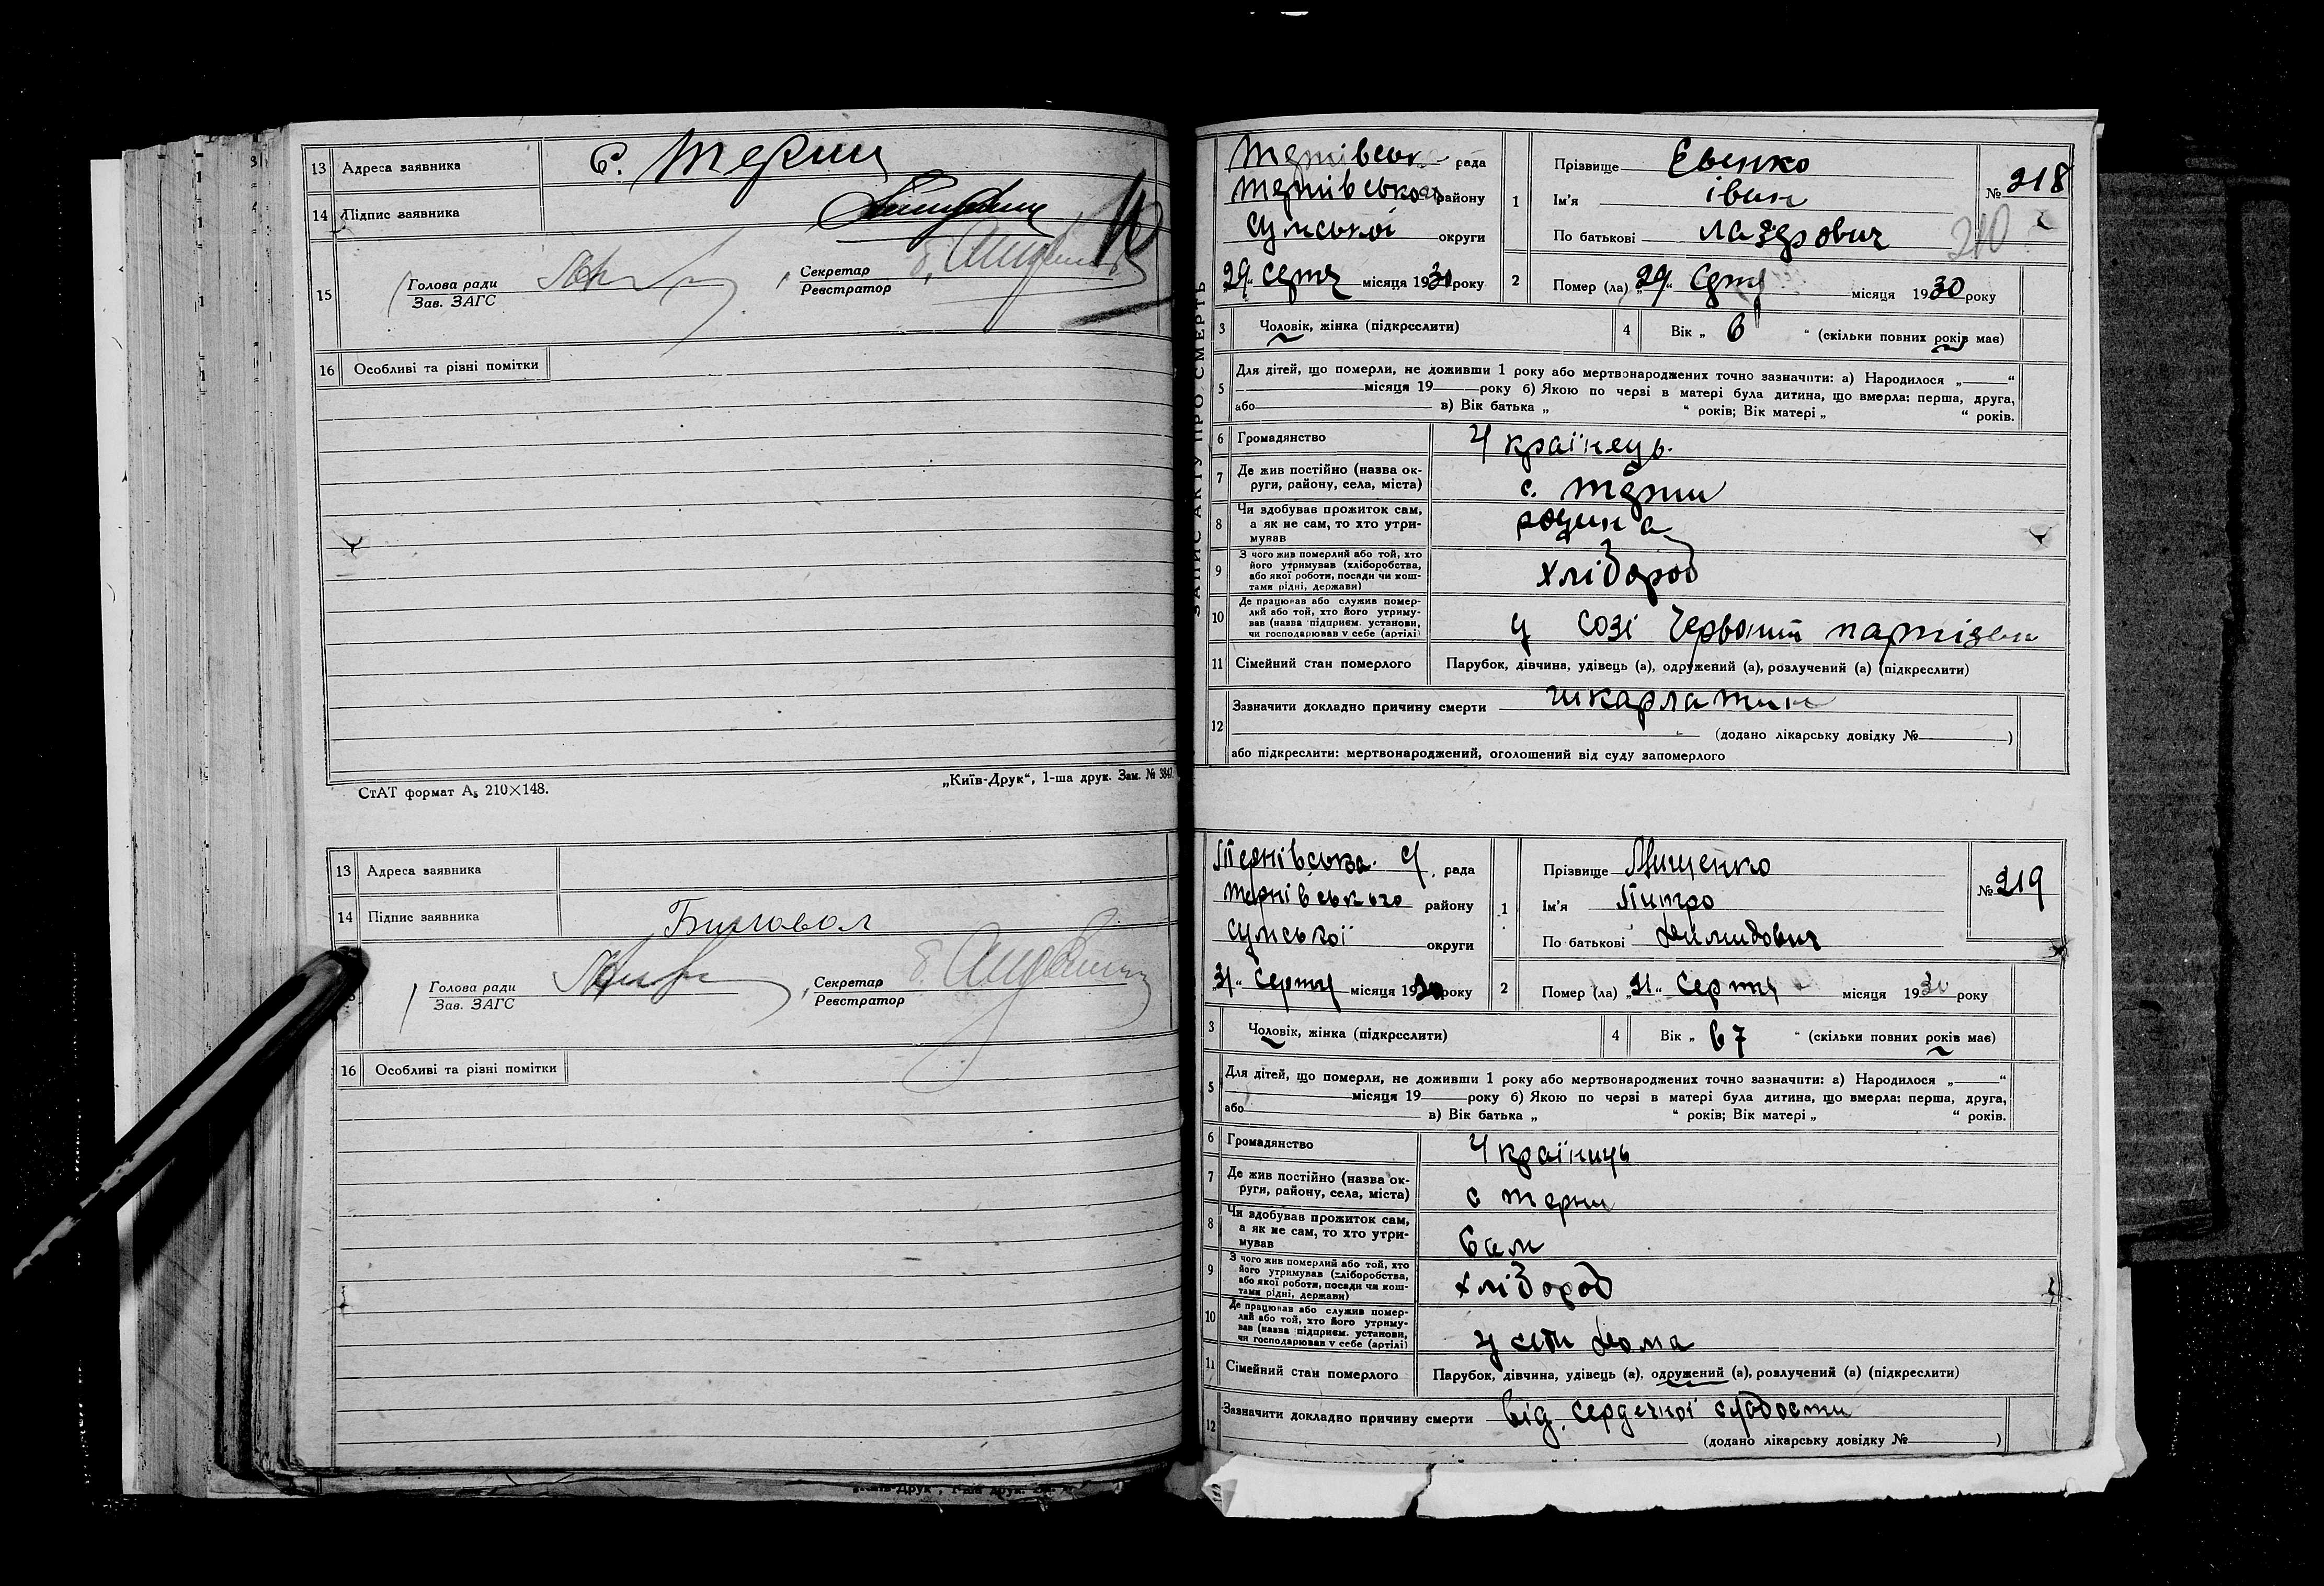 13 Адреса заявника с. Терни
14 Підпис заявника
15 Голова ради
Зав. ЗАГС
Секретар
Реєстратор
16 Особливі та різні помітки
СтАТ формат А5 210×148.
„Київ-Друк“, 1-ша друк. Зам. № 3847.
13 Адреса заявника
14 Підпис заявника Биловол
Голова ради
Зав. ЗАГС
Секретар
Реєстратор
16 Особливі та різні помітки
ЗАПИС АКТУ ПРО СМЕРТЬ
Тернівськ рада
Тернівського району
Сумської округи
„29“ Серпн місяця 1930 року
1 Прізвище Евенко
Ім’я іван
По батькові лазарович
№ 218
210
2 Помер (ла) „29“ Серпн місяця 1930 року
3 Чоловік, жінка (підкреслити)
4 Вік „ 6 “ (скільки повних років має)
5 Для дітей, що померли, не доживши 1 року або мертвонароджених точно зазначити: а) Народилося „ “
місяця 19 року б) Якою по черзі в матері була дитина, що вмерла: перша, друга,
або в) Вік батька „ “ років; Вік матері „ “ років.
6 Громадянство Українець.
7 Де жив постійно (назва округи, району, села, міста) с. Терни
8 Чи здобував прожиток сам, а як не сам, то хто утримував родина
9 З чого жив померлий або той, хто його утримував (хліборобства, або якої роботи, посади чи коштами рідні, держави) хлібороб
10 Де працював або служив померлий або той, хто його утримував (назва підприєм. установи, чи господарював у себе (артілі) у созі Червоний партізан
11 Сімейний стан померлого Парубок, дівчина, удівець (а), одружений (а), розлучений (а) (підкреслити)
12 Зазначити докладно причину смерти шкарлатин
(додано лікарську довідку № )
або підкреслити: мертвонароджений, оголошений від суду запомерлого
Тернівська С. рада
Тернівського району
Сумської округи
„31“ Серпня місяця 1930 року
1 Прізвище Мищенко
Ім’я Питро
По батькові Дилидович
№ 219
2 Помер (ла) „31“ Серпня місяця 1930 року
3 Чоловік, жінка (підкреслити)
4 Вік „ 67 “ (скільки повних років має)
5 Для дітей, що померли, не доживши 1 року або мертвонароджених точно зазначити: а) Народилося „ “
місяця 19 року б) Якою по черзі в матері була дитина, що вмерла: перша, друга,
або в) Вік батька „ “ років; Вік матері „ “ років.
6 Громадянство Українищь
7 Де жив постійно (назва округи, району, села, міста) с Терни
8 Чи здобував прожиток сам, а як не сам, то хто утримував Сам
9 З чого жив померлий або той, хто його утримував (хліборобства, або якої роботи, посади чи коштами рідні, держави) хлібороб
10 Де працював або служив померлий або той, хто його утримував (назва підприєм. установи, чи господарював у себе (артілі) у себи дома
11 Сімейний стан померлого Парубок, дівчина, удівець (а), одружений (а), розлучений (а) (підкреслити)
12 Зазначити докладно причину смерти від. сердечної слабости
(додано лікарську довідку № )